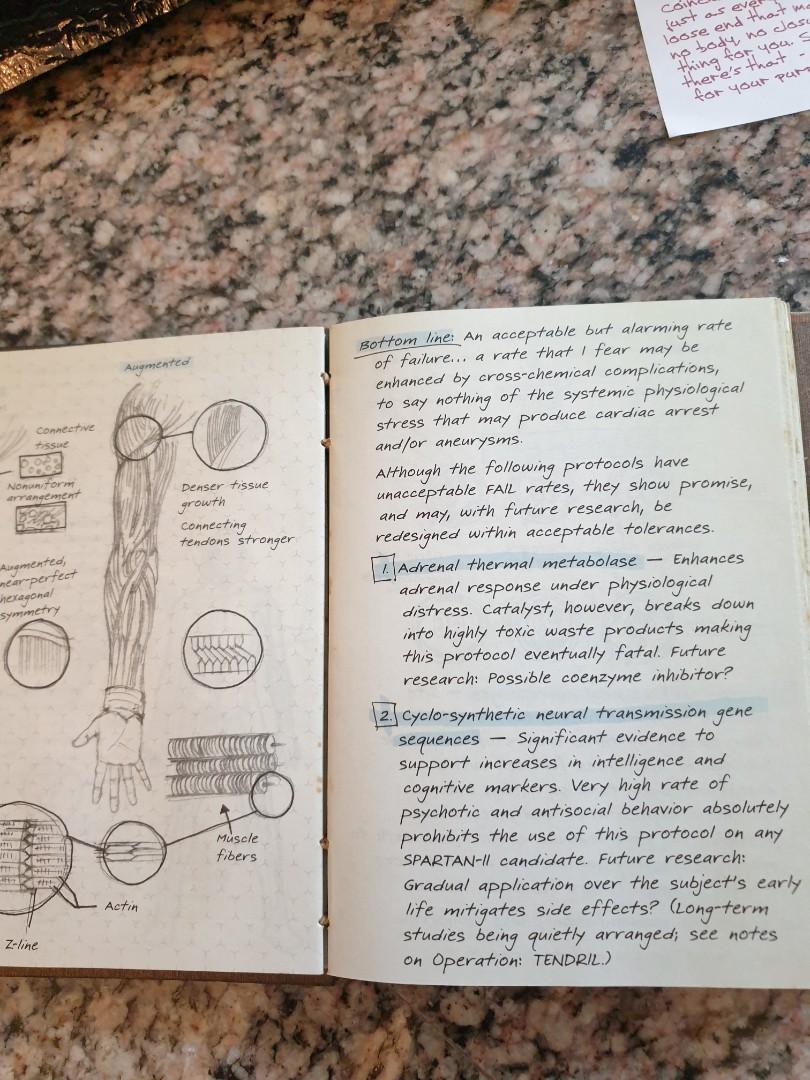 just as ever
loose end that
no body, no
thing for you.
there's that
for your
Augmented
Connective
tissue
Nonuniform
arrangement
Augmented,
near-perfect
hexagonal
symmetry
Denser tissue
growth
Connecting
tendons stronger
Muscle
fibers
Actin
Z-line
Bottom line: An acceptable but alarming rate
of failure... a rate that I fear may be
enhanced by cross-chemical complications,
to say nothing of the systemic physiological
stress that may produce cardiac arrest
and/or aneurysms.
Although the following protocols have
unacceptable FAIL rates, they show promise,
and may, with future research, be
redesigned within acceptable tolerances.
1. Adrenal thermal metabolase — Enhances
adrenal response under physiological
distress. Catalyst, however, breaks down
into highly toxic waste products making
this protocol eventually fatal. Future
research: Possible coenzyme inhibitor?
2. Cyclo-synthetic neural transmission gene
sequences — Significant evidence to
support increases in intelligence and
cognitive markers. Very high rate of
psychotic and antisocial behavior absolutely
prohibits the use of this protocol on any
SPARTAN-II candidate. Future research:
Gradual application over the subject's early
life mitigates side effects? (Long-term
studies being quietly arranged; see notes
on Operation: TENDRIL.)